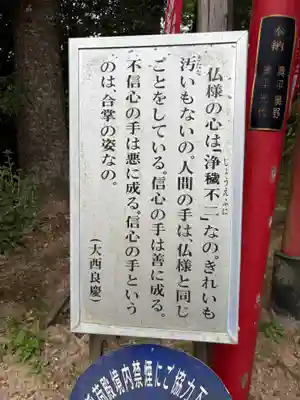 仏様の心は「浄穢不二」なの。きれいも
じょうえふに
汚いもないの。人間の手は、仏様と同じ
きたな
ことをしている。信心の手は善に成る。
不信心の手は悪に成る。信心の手という
のは、合掌の姿なの。
(大西良慶)
奉納
境内禁煙にご協力下